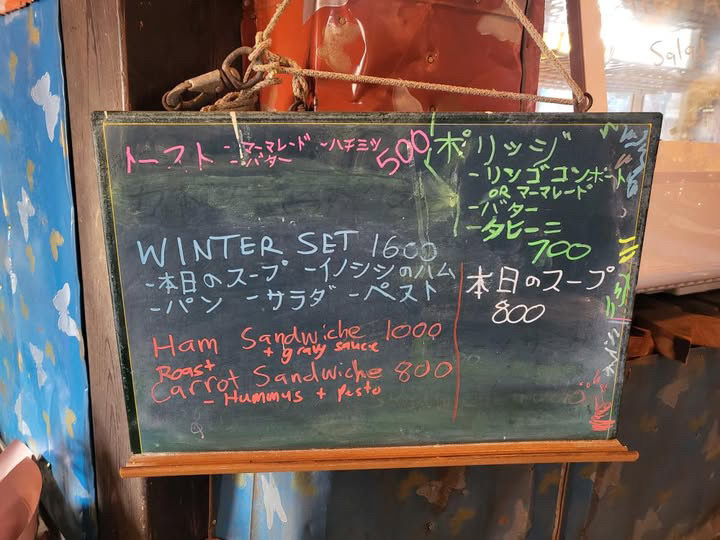 トースト -マーマレード -ハチミツ 500
-バター
ポリッジ
-リンゴコンポート
OR マーマレード
-バター
-タヒーニ
700
WINTER SET 1600
-本日のスープ -イノシシのハム
-パン -サラダ -ペスト
本日のスープ
800
Ham Sandwiche 1000
+ gravy sauce
Roast
Carrot Sandwiche 800
- Hummus + Pesto